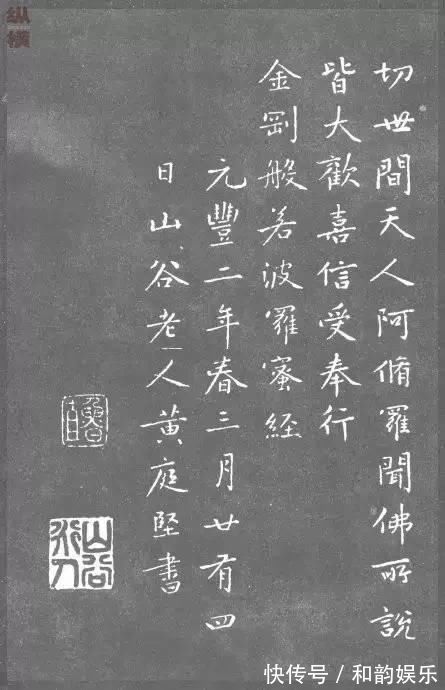 纵横
切世間天人阿脩羅聞佛所說
皆大歡喜信受奉行
金剛般若波羅蜜経
元豐二年春三月廿有四
日山谷老人黃庭堅書
山谷
快传号 / 和韵娱乐